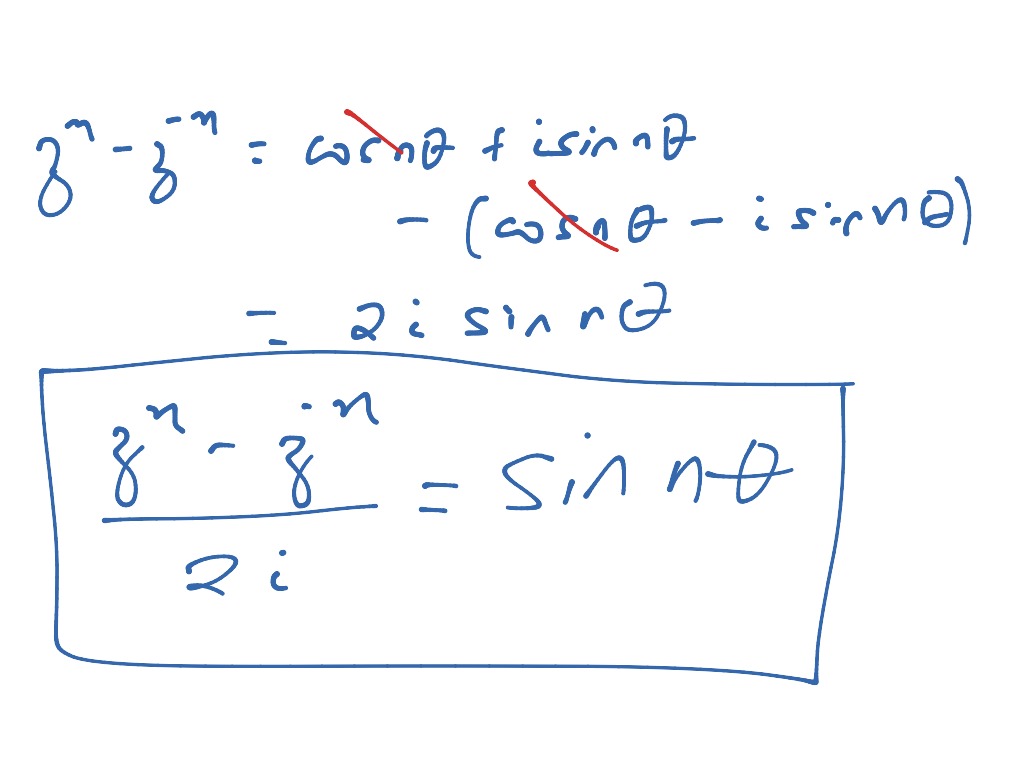 z^n - z^-n = cos nθ + i sin nθ
- (cos nθ - i sin nθ)
= 2 i sin nθ
z^n - z^-n = sin nθ
2 i